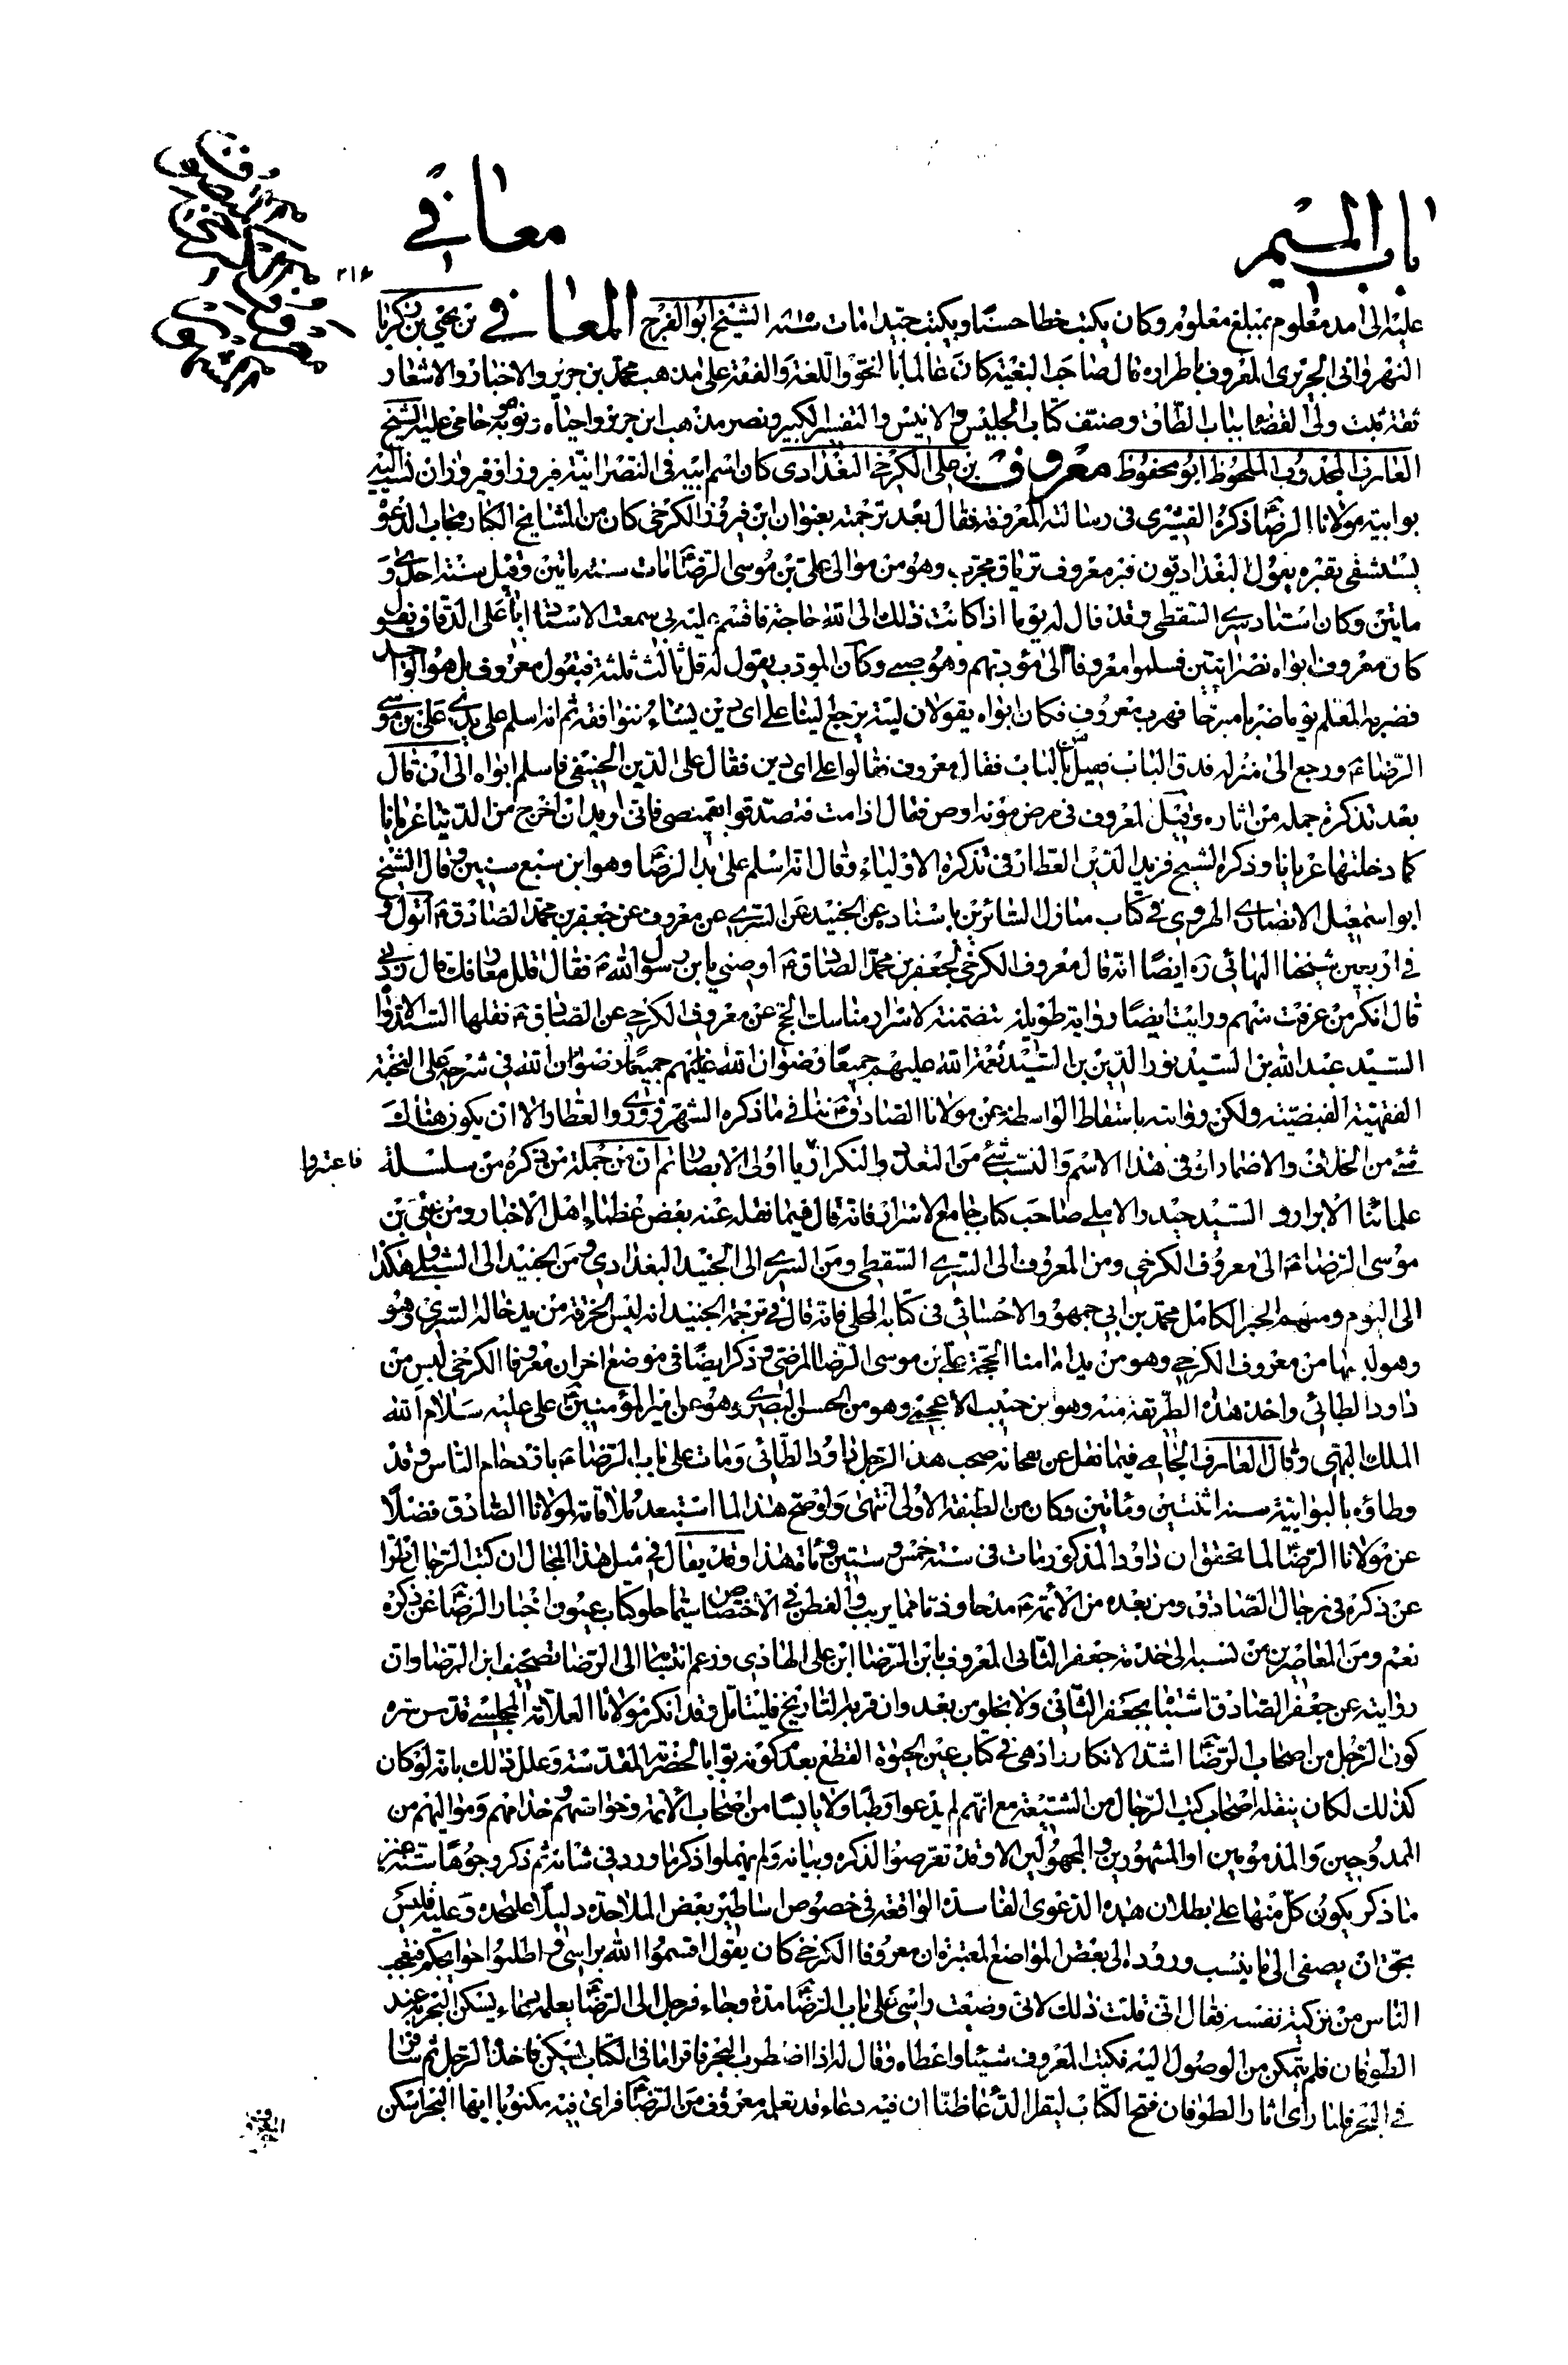 باب الميم
معافي
٢١٤
عليه الى امد معلوم بمبلغ معلوم وكان يكتب خطا حسنا ويكتب جيدا مات سنة الشيخ ابو الفرج المعافي بن يحيى بن زكريا
النهرواني الجريري المعروف بابن طرارة قال صاحب البغية كان عالما بالنحو واللغة والفقه على مذهب محمد بن جرير والاخبار والاشعار
ثقة ثبت ولي القضاء بباب الطاق وصنف كتاب الجليس والانيس والتفسير الكبير ونصر مذهب ابن جرير واحياه ونوه به وحامى عليه الشيخ
العارف المجذوب الملحوظ ابو محفوظ معروف بن علي الكرخي البغدادي كان اسم ابيه في النصرانية فيروز او فيروزان نسب اليه
بوابية مولانا الرضا ذكره القشيري في رسالته المعروفة فقال بعد ترجمته بعنوان ابن فيروز الكرخي كان من المشايخ الكبار مجاب الدعوة
يستشفى بقبره يقول البغداديون قبر معروف ترياق مجرب وهو من موالى علي بن موسى الرضا مات سنة ماتين وقيل سنة احدى و
ماتين وكان استاد سري السقطي وقد قال له يوما اذا كانت لك الى الله حاجة فاقسم عليه بي سمعت الاستاد ابا علي الدقاق يقول
كان معروف ابواه نصرانيين فسلموا معروفا الى مؤدبهم وهو صبي وكان المودب يقول له قل ثالث ثلثة فيقول معروف بل هو الواحد
فضربه المعلم يوما ضربا مبرحا فهرب معروف فكان ابواه يقولان ليته يرجع الينا على اي دين يشاء نوافقه ثم انه اسلم على يدي علي بن موسى
الرضا ع ورجع الى منزله فدق الباب فقيل من بالباب فقال معروف فقالوا على اي دين فقال على الدين الحنيفي فاسلم ابواه الى ان قال
بعد تذكرة جملة من اثاره وقيل لمعروف في مرض موته اوص فقال اذا مت فتصدقوا بقميصي فاني اريد ان اخرج من الدنيا عريانا
كما دخلتها عريانا وذكره الشيخ فريد الدين العطار في تذكرة الاولياء وقال انه اسلم على يد الرضا وهو ابن سبع سنين وقال الشيخ
ابو اسمعيل الانصاري الهروي في كتاب منازل السائرين باسناده عن الجنيد عن السري عن معروف عن جعفر بن محمد الصادق ع اقول و
في اربعين شيخنا البهائي ره ايضا انه قال معروف الكرخي لجعفر بن محمد الصادق ع اوصني يابن رسول الله ع فقال اقلل معارفك قال زدني
قال انكر من عرفت منهم ورايت ايضا رواية طويلة متضمنة لاسرار مناسك الحج عن معروف الكرخي عن الصادق ع نقلها السيد الاواه
السيد عبد الله بن السيد نور الدين بن السيد نعمة الله عليهم جميعا رضوان الله عليهم جميعا رضوان الله في شرحه على النخبة
الفقهية الفيضية ولكن روايته باسقاط الواسطة عن مولانا الصادق ع ينافي ما ذكره الشهرزوري والعطار الا ان يكون هناك
شئ من الخلاف والاضمار ان في هذا الاسم والنسب شئ من التعدد والتكرار يا اولى الابصار ثم ان من جملة من ذكره من سلسلة
فاعتبروا
علمائنا الابرار و السيد حيدر الاملي صاحب كتاب جامع الاسرار فانه قال فيما نقله عنه بعض عظماء اهل الاخبار ومن علي بن
موسى الرضا ع الى معروف الكرخي ومن المعروف الى السري السقطي ومن السري الى الجنيد البغدادي ومن الجنيد الى الشبلي وهكذا
الى اليوم ومنهم الحبر الكامل محمد بن ابي جمهور الاحسائي في كتابه المجلي فانه قال في ترجمة الجنيد انه لبس الخرقة من يد خاله السري وهو
وهو لبسها من معروف الكرخي وهو من يد امامنا الحجة علي بن موسى الرضا المرضي وذكر ايضا في موضع اخر ان معروفا الكرخي لبس من
داود الطائي واخذ هذه الطريقة منه وهو من حبيب الاعجمي وهو من الحسن البصري وهو من امير المؤمنين علي عليه سلام الله
الملك البهي وقال العارف الجامي فيما نقل عن نفحاته صحب هذا الرجل داود الطائي ومات على باب الرضا ع بازدحام الناس وقد
وطاؤه بالبوابية سنة اثنتين ومائتين وكان من الطبقة الاولى انتهى واوضح هذا لما استبعد ملاقاته لمولانا الصادق فضلا
عن مولانا الرضا لما تحقق ان داود المذكور مات في سنة خمس وستين ومائة هذا وقد يقال في مثل هذا المجال ان كتب الرجال اذ خلوا
عن ذكره في رجال الصادق ومن بعده من الائمة ع مدحا وذما مما يريب والفطن في الاختصاص سيما خلو كتاب عيون اخبار الرضا عن ذكره
نعم ومن المعاصرين من نسبه الى خدمة جعفر الثاني المعروف بابن الرضا ابن علي الهادي وزعم انتسابه الى الرضا تصحيف ابن الرضا وان
روايته عن جعفر الصادق اشتبا بجعفر الثاني ولا يخلو من بعد وان قربه التاريخ فليتامل وقد انكر مولانا العلامة المجلسي قدس سره
كون الرجل من اصحاب الرضا اشد الانكار اذ هى في كتاب عين الحيوة القطع بعدم كونه بوابا لحضرته المقدسة وعلل ذلك بانه لو كان
كذلك لكان ينقله اصحاب كتب الرجال من الشيعة مع انهم لم يدعوا رطبا ولا يابسا من اصحاب الائمة وخواصهم وخدامهم ومواليهم من
الممدوحين والمذمومين او المشهورين والمجهولين الا وقد تعرضوا لذكره وبيانه ولم يهملوا ذكر ما ورد في شانه ثم ذكر وجوها ستة غير
ما ذكر يكون كل منها على بطلان هذه الدعوى الفاسدة الواقعة في خصوص اساطير بعض الملاحدة دليلا عليحده وعليه فليس
بحق ان يصغى الى ما ينسب وروده الى بعض المواضع المعتبرة ان معروفا الكرخي كان يقول اقسموا الله براسي و اطلبوا حوايجكم فتعجب
الناس من تزكية نفسه فقال اني قلت ذلك لاني وضعت راسي على باب الرضا مدة وجاء رجل الى الرضا يعلمه دعاء يسكن البحر به عند
الطوفان فلم يتمكن من الوصول اليه فكتب المعروف شيئا واعطاه وقال له اذا اضطرب البحر فاقرا ما في الكتاب يسكن فاخذ الرجل ثم سافر
في البحر فلما راى اثار الطوفان فتح الكتاب ليقرا الدعا ظنا ان فيه دعاء قد تعلمه معروف من الرضا فراى فيه مكتوبا ايها البحر اسكن